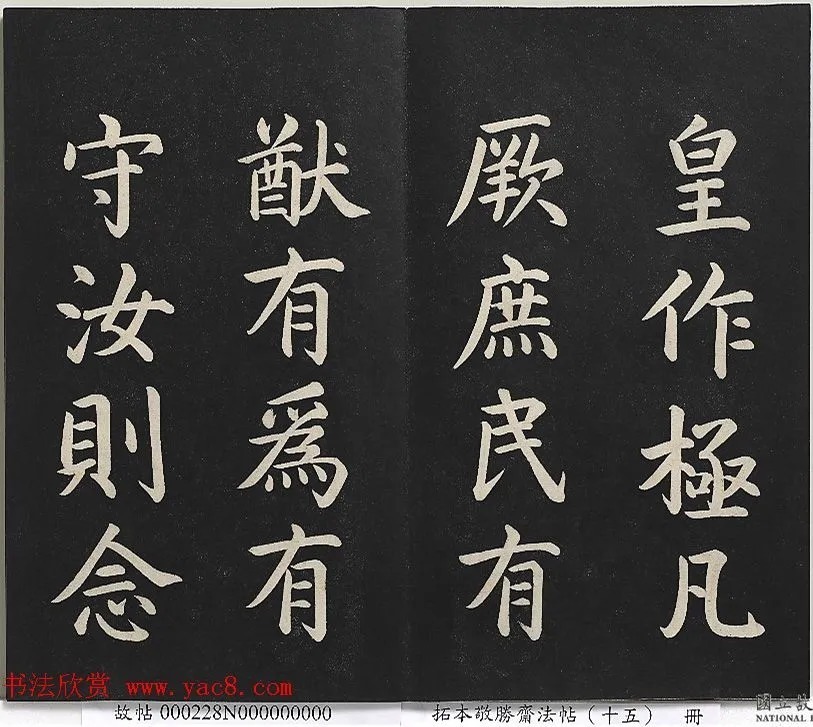 皇作極凡
厥庶民有
猷有爲有
守汝則念
书法欣赏 www.yac8.com
故帖000228N000000000
拓本敬勝齋法帖（十五） 冊
國立故
NATIONAL